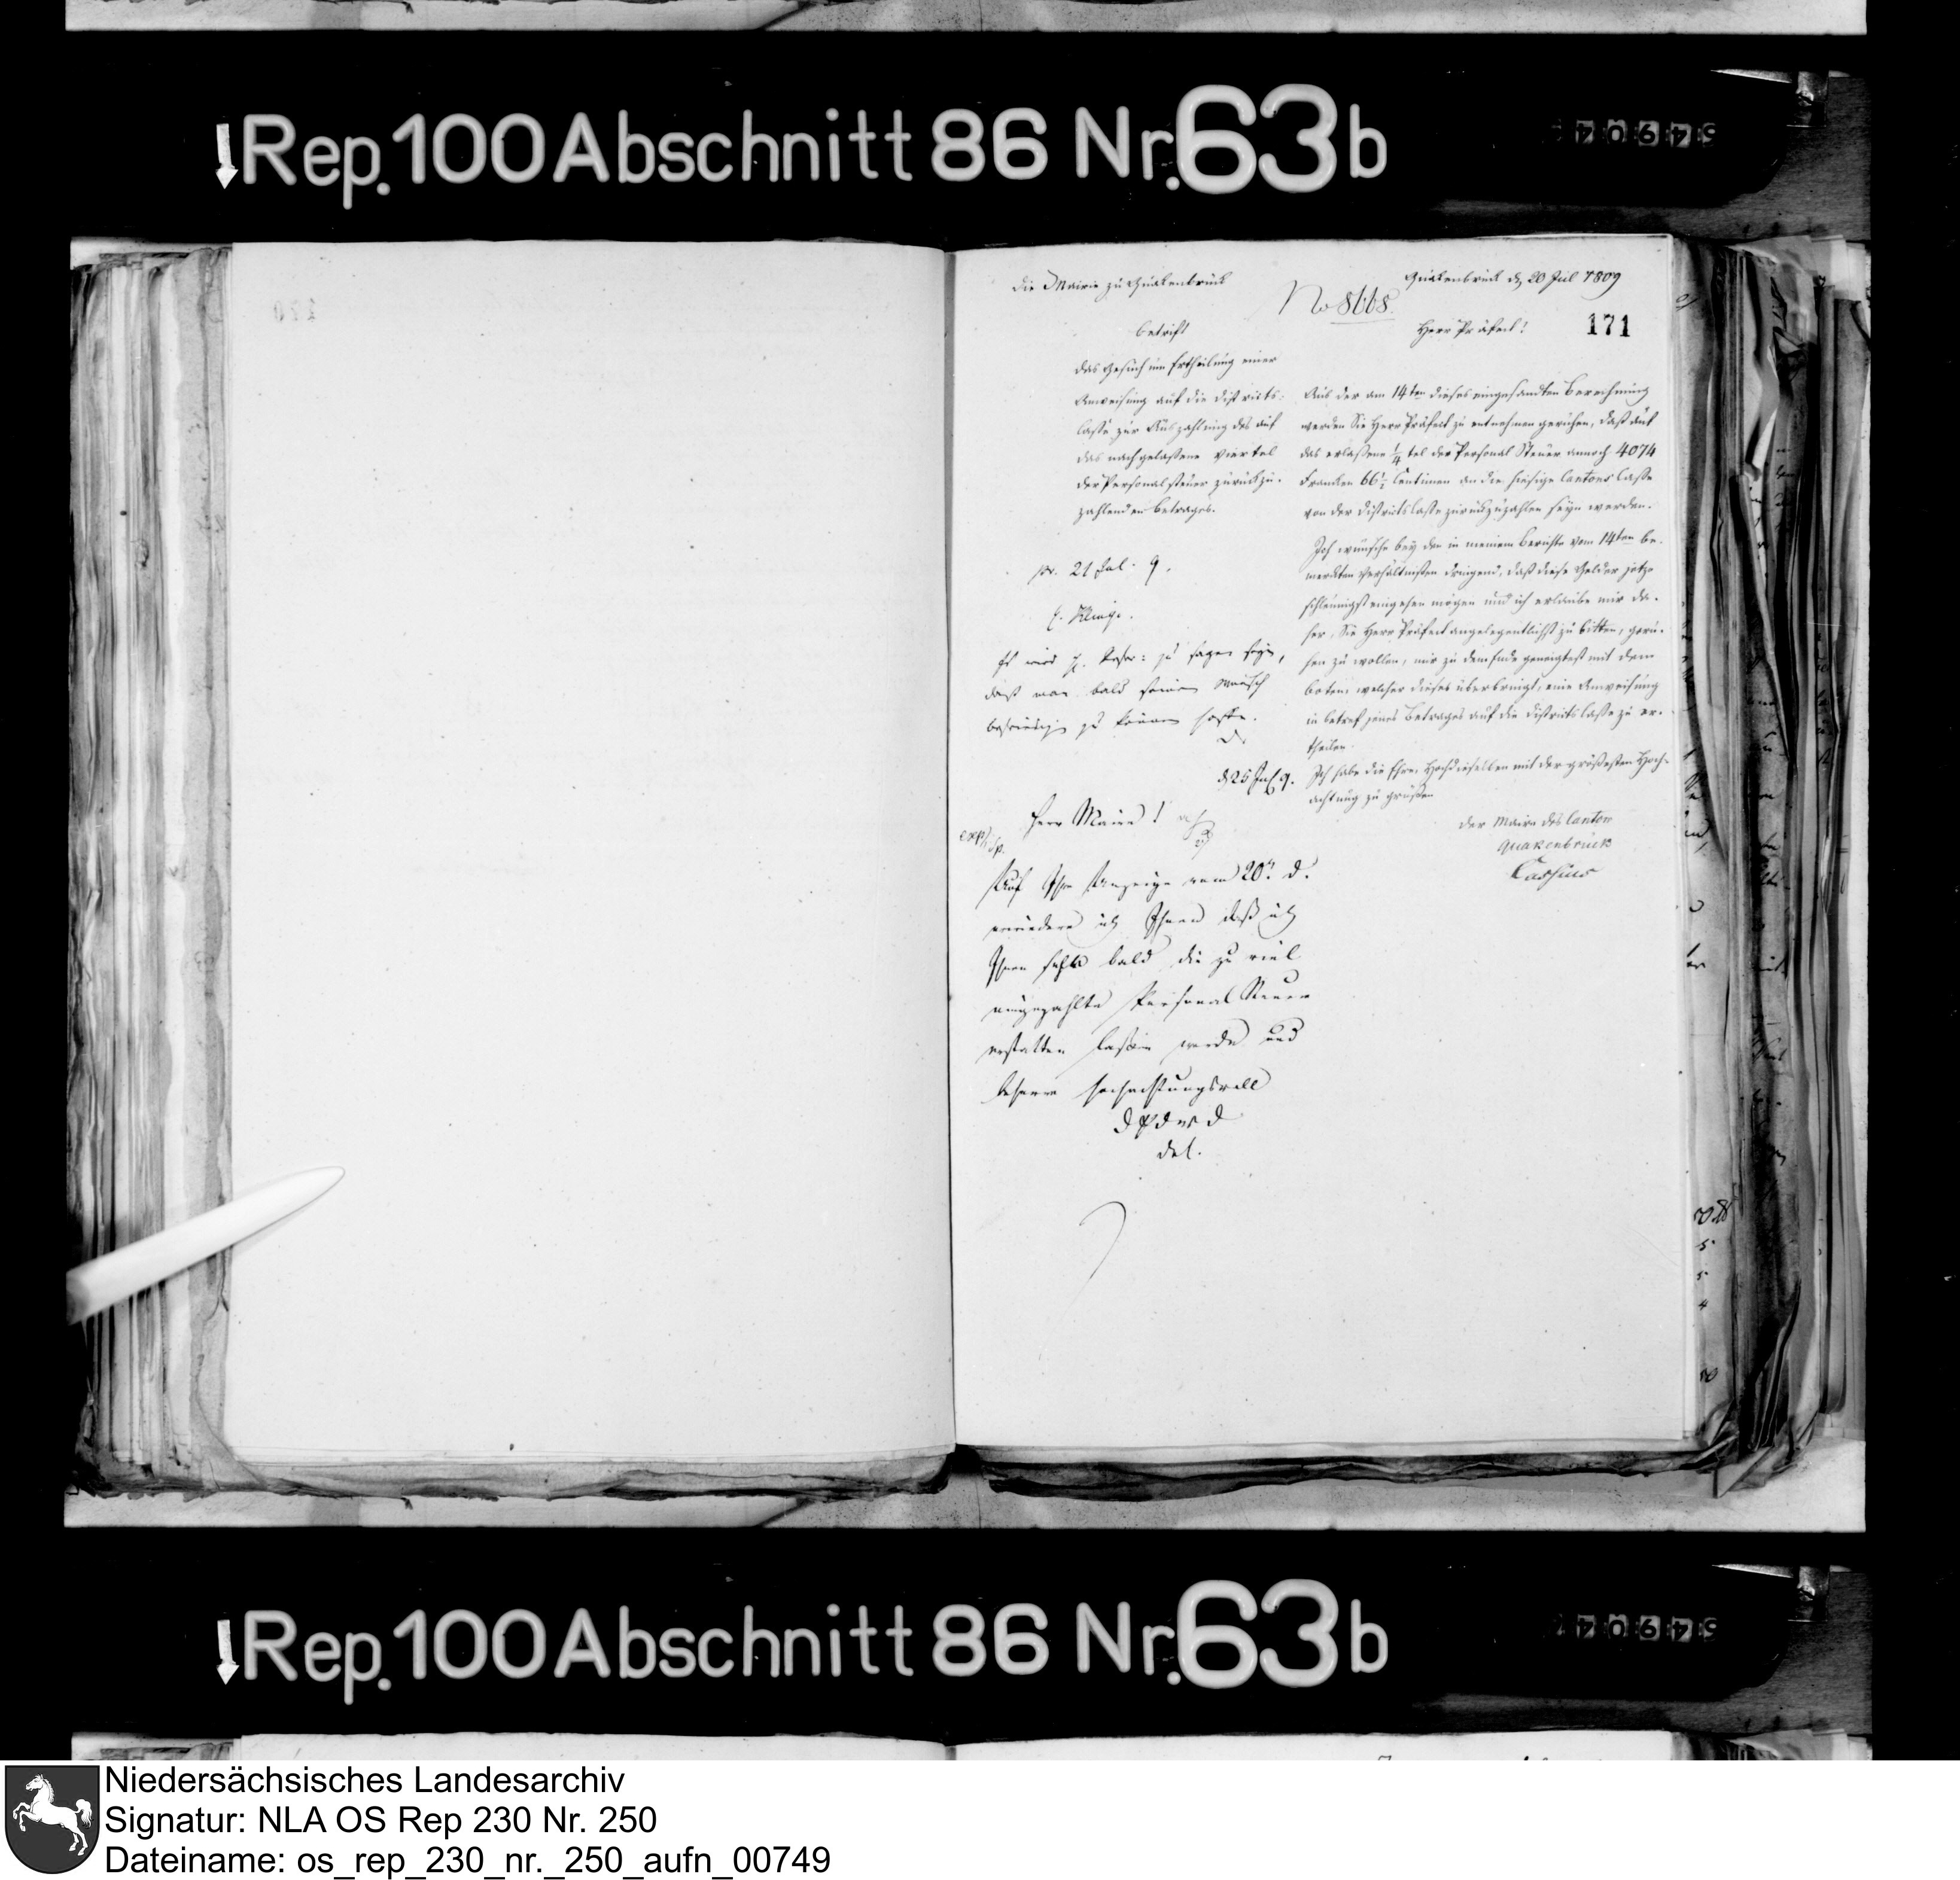 Rep. 100 Abschnitt 86 Nr. 63b
54904
Die Mairie zu Quakenbrück
Quakenbrück d. 20 Jul 1809
No 8668.
171
betrift
das Gesuch um Ertheilung einer
Anweisung auf die Districts-
Casse zur Auszahlung des auf
das nachgelaßene Viertel
der Personalsteuer zurückzu-
zahlenden Betrages.
Herr Präfect!
Aus der am 14ten dieses eingesandten Berechnung
werden Sie Herr Präfect zu entnehmen geruhen, daß auf
das erlaßene 1/4 tel der Personal Steuer annoch 4074
Franken 66 1/2 Centimen an die hiesige Cantons Casse
von der Districts Casse zurückzuzahlen seyn werden.
Ich wünsche bey den in meinem Berichte vom 14ten be-
merkten Verhältnißen dringend, daß diese Gelder jetzo
schleunigst eingehen mögen und ich erlaube mir da-
her, Sie Herr Präfect angelegentlichst zu bitten, geru-
hen zu wollen, mir zu dem Ende geneigtest mit dem
boten welcher dieses überbringt, eine Anweisung
in betref jenes Betrages auf die Districts Casse zu er-
theilen.
Ich habe die Ehre, Hochdieselben mit der größesten Hoch-
achtung zu grüßen
Der Maire des Canton
Quakenbrück
Cassius
pr. 21 Jul. 9.
Es wird zu sagen seyn,
daß man bald seinen Wunsch
befriedigen zu können hoffe.
d 25 Jul 9.
Herr Maire!
exp.
Auf Ihre Anzeige vom 20. d.
erwiedere ich Ihnen daß ich
Ihnen sehr bald die zu viel
eingezahlte Personal Steuer
erstatten laßen werde und
hochachtungsvoll
Rep. 100 Abschnitt 86 Nr. 63b
54904
Niedersächsisches Landesarchiv
Signatur: NLA OS Rep 230 Nr. 250
Dateiname: os_rep_230_nr._250_aufn_00749